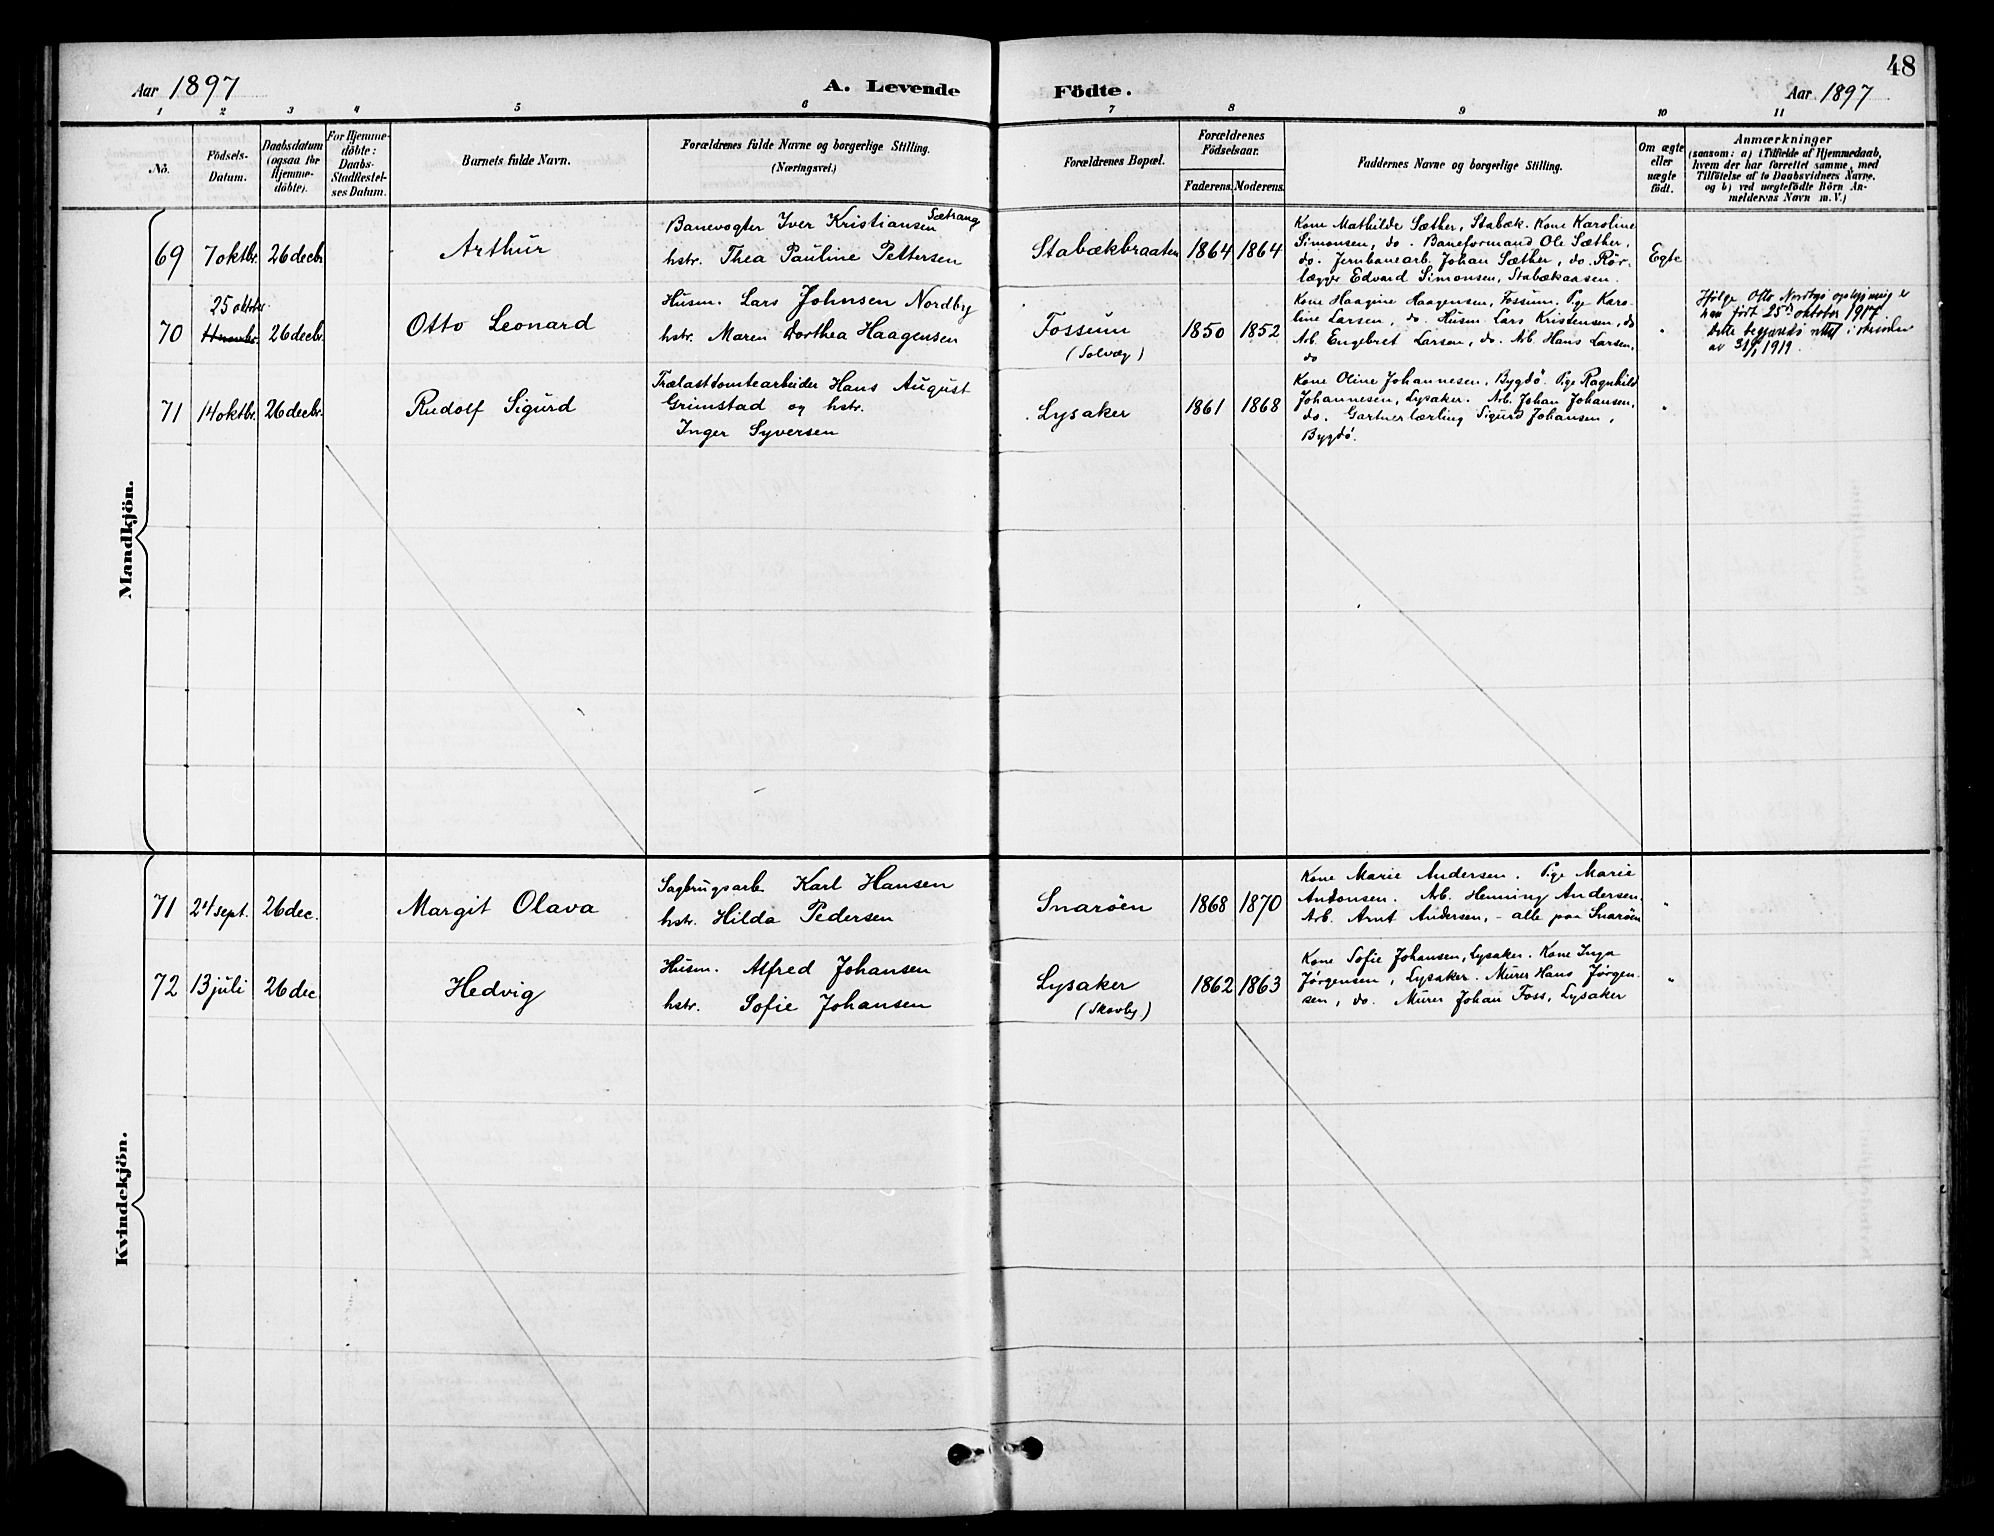 48
Aar 1897
A. Levende
Födte.
Aar 1897
1 2 3 4 5 6 7 8 9 10 11
No.
Födsels-
Datum.
Daabsdatum
(ogsaa for
Hjemme-
döbte).
For Hjemme-
döbte:
Daabs-
Stadfæstel-
ses Datum.
Barnets fulde Navn.
Forældrenes fulde Navne og borgerlige Stilling.
(Næringsvei.)
Forældrenes Bopæl.
Forældrenes
Födselsaar.
Faderens. Moderens.
Faddernes Navne og borgerlige Stilling.
Om ægte
eller
uægte
födt.
Anmærkninger
(saasom: a) i Tilfælde af Hjemmedaab,
hvem der har forrettet samme, med
Tilföielse af to Daabsvidners Navne.
og b) ved uægtefödte Börn An-
melderens Navn m. V.)
Mandkjön.
69
7 oktbr.
26 decbr
Arthur
Banevogter Iver Kristiansen Sætrang
hstr. Thea Pauline Pettersen
Stabækbraaten
1864
1864
Kone Mathilde Sæther, Stabæk. Kone Karoline
Simonsen, do. Baneformand Ole Sæther,
do. Jernbanearb. Johan Sæther, do. Rör-
lægger Edvard Simonsen, Stabækaasen
Egte
70
25 oktober
26 decbr.
Otto Leonard
Husm. Lars Johnsen Nordby
hstr. Maren Dorthea Haagensen
Fossum
(Solvæg)
1850
1852
Kone Haagine Haagensen, Fossum. Pige Karo-
line Larsen, do. Husm. Lars Kristensen, do
Arb. Engebret Larsen, do. Arb. Hans Larsen,
do
"
Ifølge Otto Nordbys oplysning er
han født 25de oktober 1917.
Dette
av 31/1 1919.
71
14 oktbr.
26 decbr.
Rudolf Sigurd
Trælasttomtearbeider Hans August
Grimstad og hstr.
Inger Syversen
Lysaker
1861
1868
Kone Oline Johannesen, Bygdö. Pige Ragnhild
Johannesen, Lysaker. Arb. Johan Johansen,
do. Gartnerlærling Sigurd Johansen,
Bygdö.
"
Kvindekjön.
71
24 sept.
26 dec.
Margit Olava
Sagbrugsarb. Karl Hansen
hstr. Hilda Pedersen
Snaröen
1868
1870
Kone Marie Andersen. Pige Marie
Antonsen. Arb. Henning Andersen.
Arb. Arnt Andersen, - alle paa Snaröen
"
72
13 juli
26 dec
Hedvig
Husm. Alfred Johansen
hstr. Sofie Johansen
Lysaker
(Skovby)
1862
1863
Kone Sofie Johansen, Lysaker. Kone Inga
Jørgensen, Lysaker. Murer Hans Jørgen-
sen, do. Murer Johan Foss, Lysaker
"